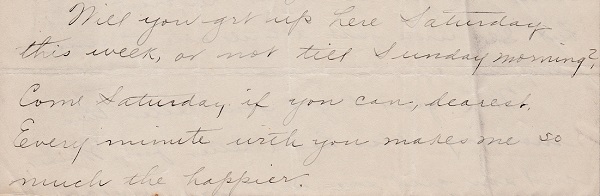 Will you get up here Saturday
this week, or not till Sunday morning?
Come Saturday if you can, dearest.
Every minute with you makes me so
much the happier.